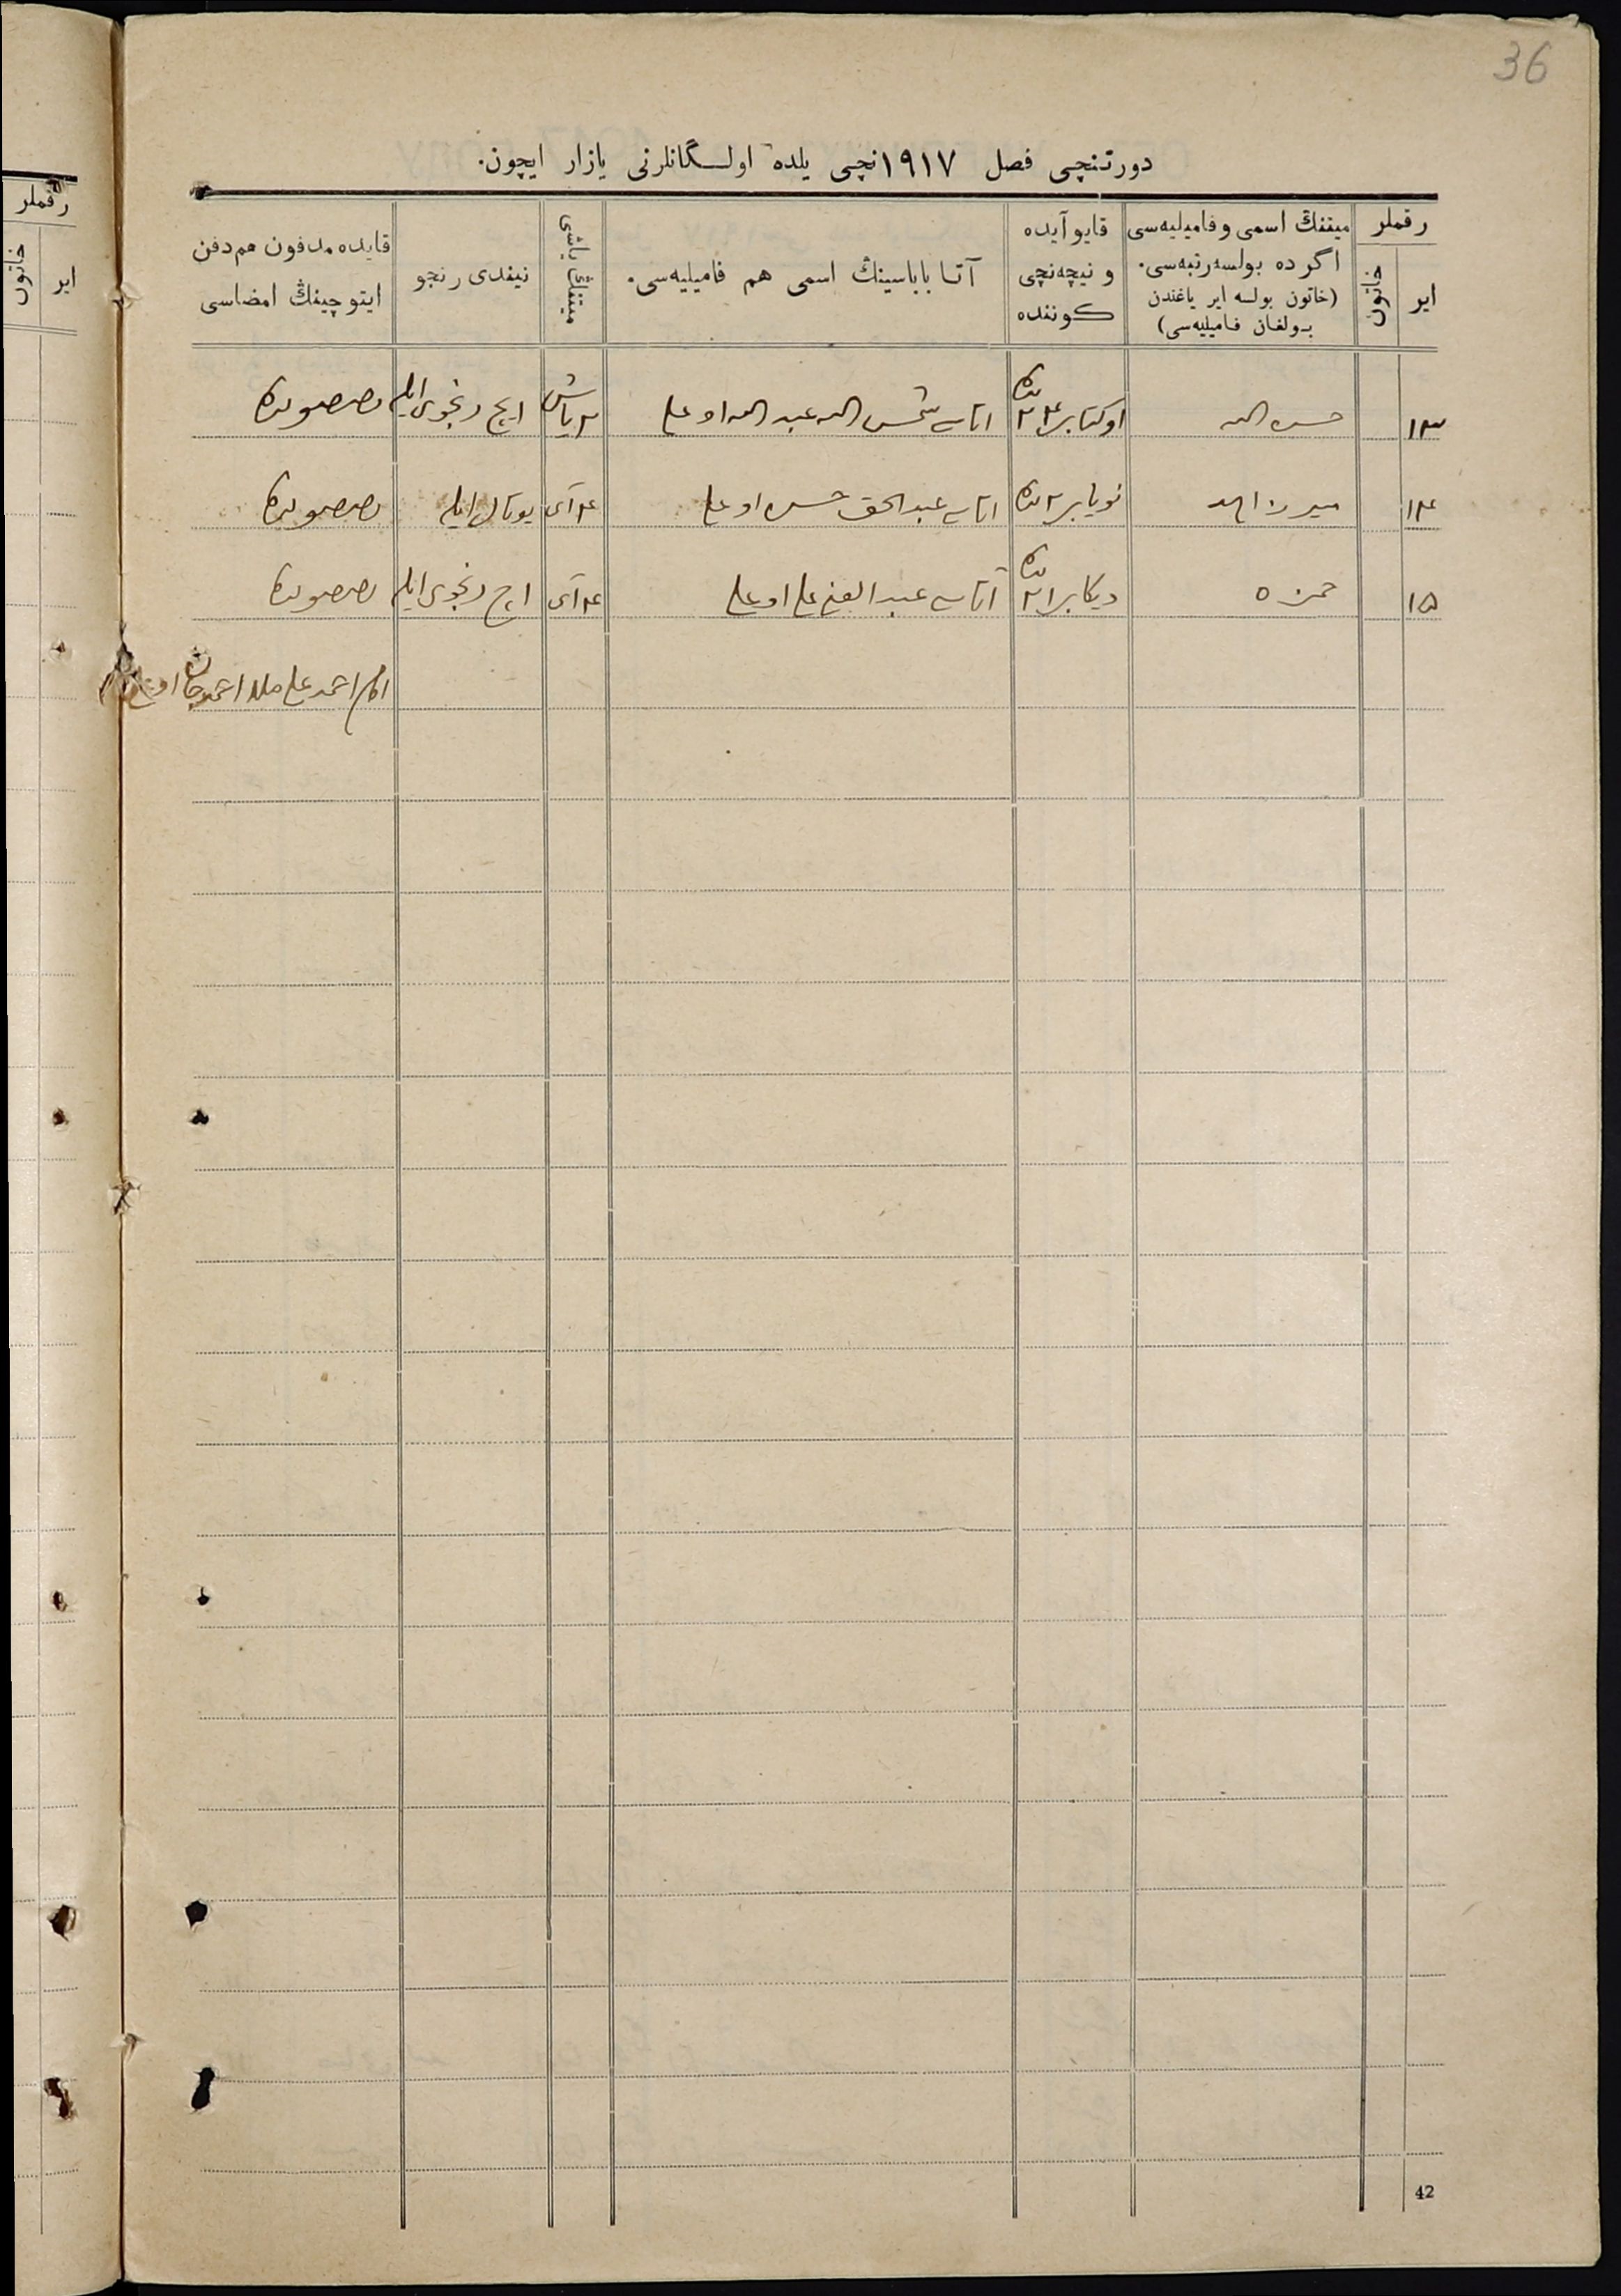 36
دورتنچی فصل ١٩١٧نچی یلده اولـگانلرنی یازار ایچون.
رقملر
ایر
خاتون
میتنڭ اسمی وفامیلیه‌سی
اگر ده بولسه رتبه‌سی.
(خاتون بولسه ایر یاغندن
بـولغان فـامیلیه‌سی)
قایو آیده
و نیچه‌نچی
كوننده
آتـا باباسینڭ اسمی هم فامیلیه‌سی.
میتنڭ یاشی
نیندی رنجو
قایده مدفون هم‌دفن
ایتوچینڭ امضاسی
١٣ حسن الله اوكتابر ٢٤ نده اتاسی شمس الله عبد الله اوغلی ٢ یاش ایچ رنجوی ایله
١٤ میرزا احمد نویابر ٢ نده اتاسی عبد الحق حسن اوغلی ٤ آی یوتال ایله
١٥ حمزه دیكابر ٢١ نده آتاسی عبد الغنی علی اوغلی ٤ آی ایچ رنجوی ایله
امام احمد علی ملا احمدجان اوغلی
رقملر
ایر
خاتون
42